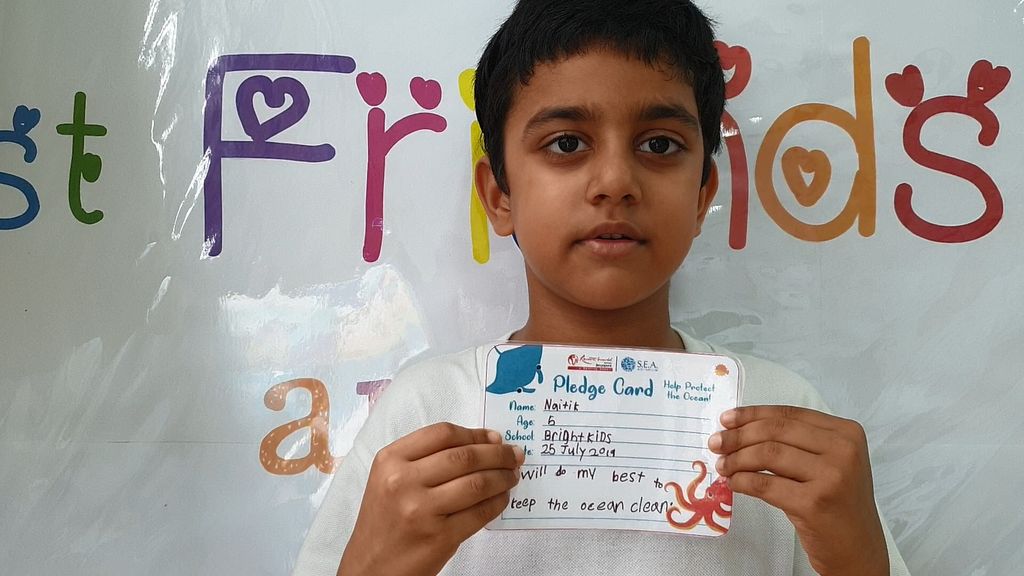 st Friends
a
S.E.A.
Pledge Card
Help Protect
the Ocean!
Name: Naitik
Age: 5
School: BrightKids
te: 25 July 2019
will do my best to
keep the ocean clean